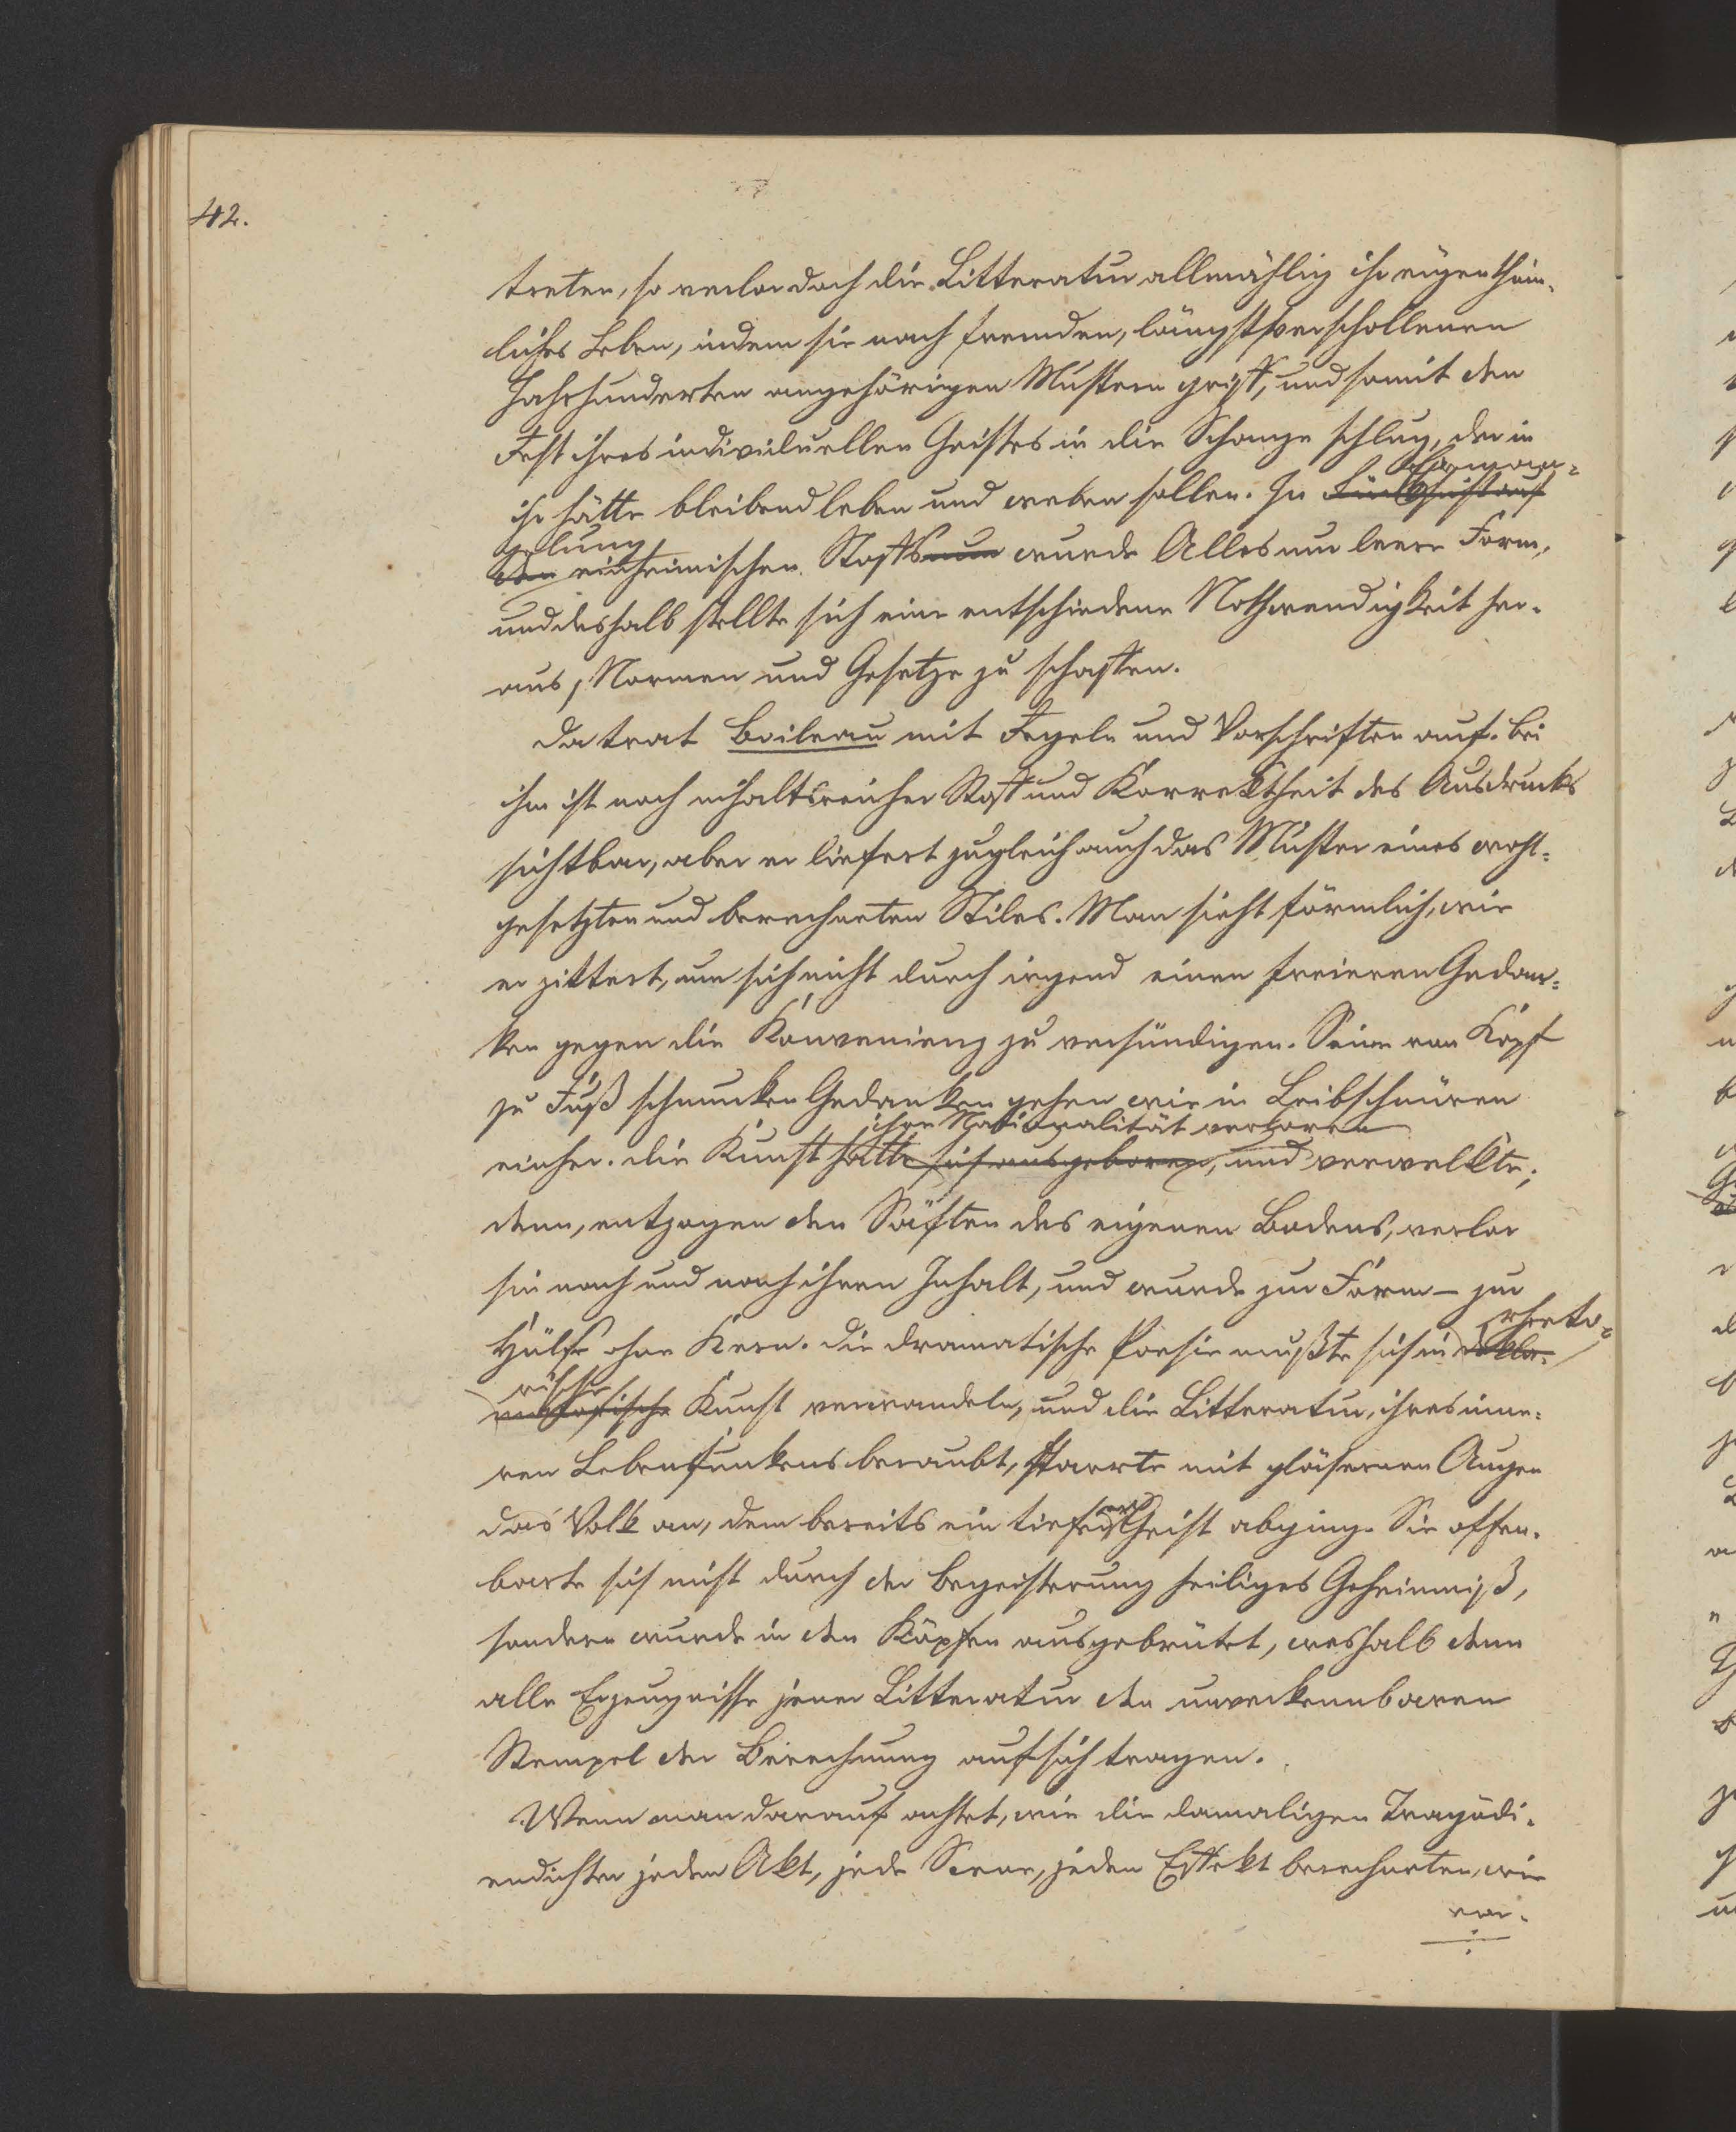 42.
treten, so verlor doch die Litteratur allmählig ihr eigenthüm-
liches Leben, indem sie nach fremden, längst verschollenen
Jahrhunderten angehörigen Mustern griff, und somit den
Rest ihres individuellen Geistes in die Schanze schlug, der in
Ermang-
ihr hätte bleibend leben und weben sollen. In
gelung
den einheimischen Stoffs nun wurde Alles nur leere Form,
und deshalb stellte sich eine entschiedene Nothwendigkeit her-
aus, Normen und Gesetze zu schaffen.
Da trat Boileau mit Regeln und Vorschriften auf. Bei
ihm ist noch inhaltsreicher Stoff und Korrektheit des Ausdrucks
sichtbar, aber er liefert zugleich auch das Muster eines wohl-
gesetzten und berechneten Stiles. Man sieht förmlich, wie
er zittert, um sich nicht durch irgend einen freieren Gedan-
ken gegen die Konvenienz zu versündigen. Seine von Kopf
zu Fuß schmucken Gedanken gehen wie in Leibschnüren
ihre Nationalität verloren
einher. Die Kunst hatte sich ausgeboren, und verwelkte;
denn, entzogen den Säften des eigenen Bodens, verlor
sie nach und nach ihren Inhalt, und wurde zur Form – zur
rheto-
Hülse ohne Kern. Die dramatische Poesie mußte sich in dekla-
rische
matorische Kunst verwandeln, und die Litteratur, ihres inne-
ren Lebensfunkens beraubt, starrte mit gläsernen Augen
das Volk an, dem bereits ein tieferer Geist abging. Sie offen-
barte sich nicht durch der Begeisterung heiliges Geheimniß,
sondern wurde in den Köpfen ausgebrütet, weshalb denn
alle Erzeugnisse jener Litteratur den unverkennbaren
Stempel der Berechnung auf sich tragen.
Wenn man darauf achtet, wie die damaligen Tragödi-
endichter jeden Akt, jede Scene, jeden Effekt berechneten, wie